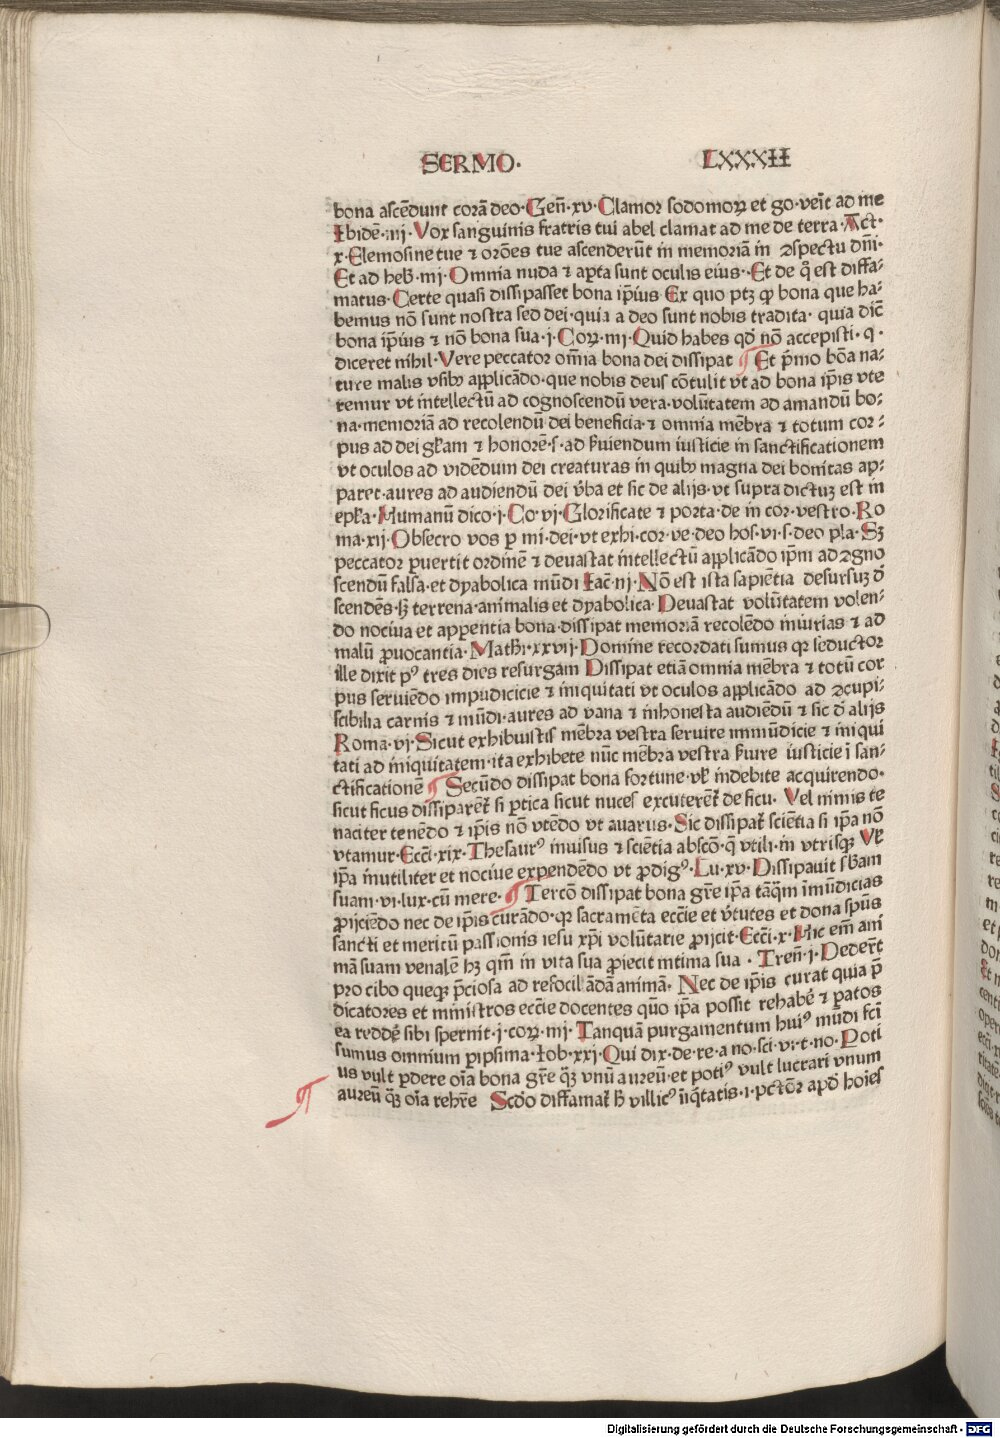 SERMO. LXXXII
bona ascēdunt corā deo. Geñ. xv. Clamor sodomoꝝ et go. veīt ad me
Ibidē. iiij. Vox sanguinis fratris tui abel clamat ad me de terra. Act.
x. Elemosine tue ⁊ orōes tue ascenderūt in memoriā in ꝯspectu dn̄i.
Et ad heb̄. iiij. Omnia nuda ⁊ aꝑta sunt oculis eius. Et de q̊ est diffa-
matus. Certe quasi dissipasset bona ip̄ius Ex quo ptꝫ ꝙ bona que ha-
bemus nō sunt nostra sed dei. quia a deo sunt nobis tradita. quia dic̄
bona ip̄ius ⁊ nō bona sua. j. Coꝝ. iiij. Quid habes qd̓ nō accepisti. q.
diceret nihil. Vere peccator om̄ia bona dei dissipat ¶ Et p̄mo bōa na-
ture malis vsibꝰ applicādo. que nobis deus cōtulit vt ad bona ip̄is vte
remur vt intellectū ad cognoscendū vera. volūtatem ad amandū bo-
na. memoriā ad recolendū dei beneficia. ⁊ omnia mēbra ⁊ totum cor-
pus ad dei gl̓iam ⁊ honorē. s. ad s̓uiendum iusticie in sanctificationem
vt oculos ad vidēdum dei creaturas in quibꝰ magna dei bonitas ap-
paret. aures ad audiendū dei v̓ba et sic de alijs. vt supra dictuꝫ est in
ep̄l̓a. Humanū dico. j. Co. vj. Glorificate ⁊ porta. de in cor. vestro. Ro
ma. xij. Obsecro vos ꝑ mi. dei. vt exhi. cor. ve. deo hos. vi. s. deo pla. Sꝫ
peccator ꝑuertit ordinē ⁊ deuastat intellectū applicādo ip̄m ad ꝯgno
scendū falsa. et dyabolica mūdi Iac̄. iij. Nō est ista sapiētia desursuꝫ d̓
scendēs. sꝫ terrena. animalis et dyabolica. Deuastat volūtatem volen-
do nociua et appentia bona. dissipat memoriā recolēdo iniurias ⁊ ad
malū ꝓuocantia. Math̓. xxvij. Domine recordati sumus qꝛ seductor
ille dixit pꝰ tres dies resurgam Dissipat etiā omnia mēbra ⁊ totū cor
pus seruiēdo impudicicie ⁊ iniquitati vt oculos applicādo ad ꝯcupi-
scibilia carnis ⁊ mūdi. aures ad vana ⁊ inhonesta audiēdū ⁊ sic d̓ alijs
Roma. vj. Sicut exhibuistis mēbra vestra seruire immūdicie ⁊ iniqui
tati ad iniquitatem. ita exhibete nūc mēbra vestra s̓uire iusticie ī san-
ctificationē ¶ Secūdo dissipat bona fortune. vl̓ indebite acquirendo.
sicut ficus dissiparēt̓ si ꝑtica sicut nuces excuterēt̓ de ficu. Vel nimis te
naciter tenēdo ⁊ ip̄is nō vtēdo vt auarus. Sic dissipat̓ sciētia si ip̄a nō
vtamur. Ecc̄i. xix. Thesaurꝰ inuisus ⁊ sciētia abscō. q̄ vtili. in vtrisqꝫ Vl̓
ip̄a inutiliter et nociue expendēdo vt ꝓdigꝰ. Lu. xv. Dissipauit sb̄am
suam. vi. lux. cū mere. ¶ Tercō dissipat bona gr̄e ip̄a tāq̄m īmūdicias
ꝓijciēdo nec de ip̄is curādo. qꝛ sacramēta ecc̄ie et v̓tutes et dona sp̄us
sancti et meritū passionis iesu xp̄i volūtarie ꝓijcit. Ecc̄i. x. Hic em̄ ani
mā suam venalē hꝫ qm̄ in vita sua ꝓiecit intima sua. Tren̄. j. Dedeȓt
pro cibo queqꝫ p̄ciosa ad refocilādā animā. Nec de ip̄is curat quia p̄
dicatores et ministros ecc̄ie docentes quō ip̄a possit rehabe̓ ⁊ ꝑatos
ea redde̓ sibi spernit. j. coꝝ. iiij. Tanquā purgamentum huiꝰ mūdi fc̄i
sumus omnium ꝑipsima. Iob. xxj. Qui dix. de. re. a no. sci. vi. t. no. Poti
us vult ꝑdere oīa bona gr̄e qꝫ̄ vnū aureū. et potiꝰ vult lucrari vnum
aureū qꝫ̄ oīa reh̓re Scd̓o diffamat̓ h̓ villicꝰ īiq̄tatis. i. pctōr apd̓ hoīes